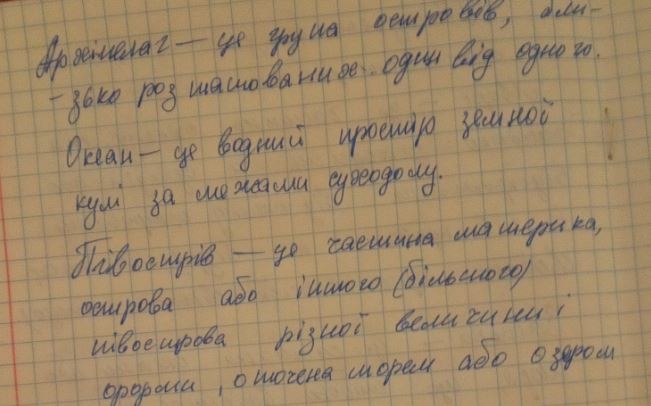 Архіпелаг — це група островів, бли-
-зько розташованих один від одного.
Океан — це водний простір земної
кулі за межами суходолу.
Півострів — це частина материка,
острова або іншого (більшого)
півострова різної величини і
форми, оточена морем або озером